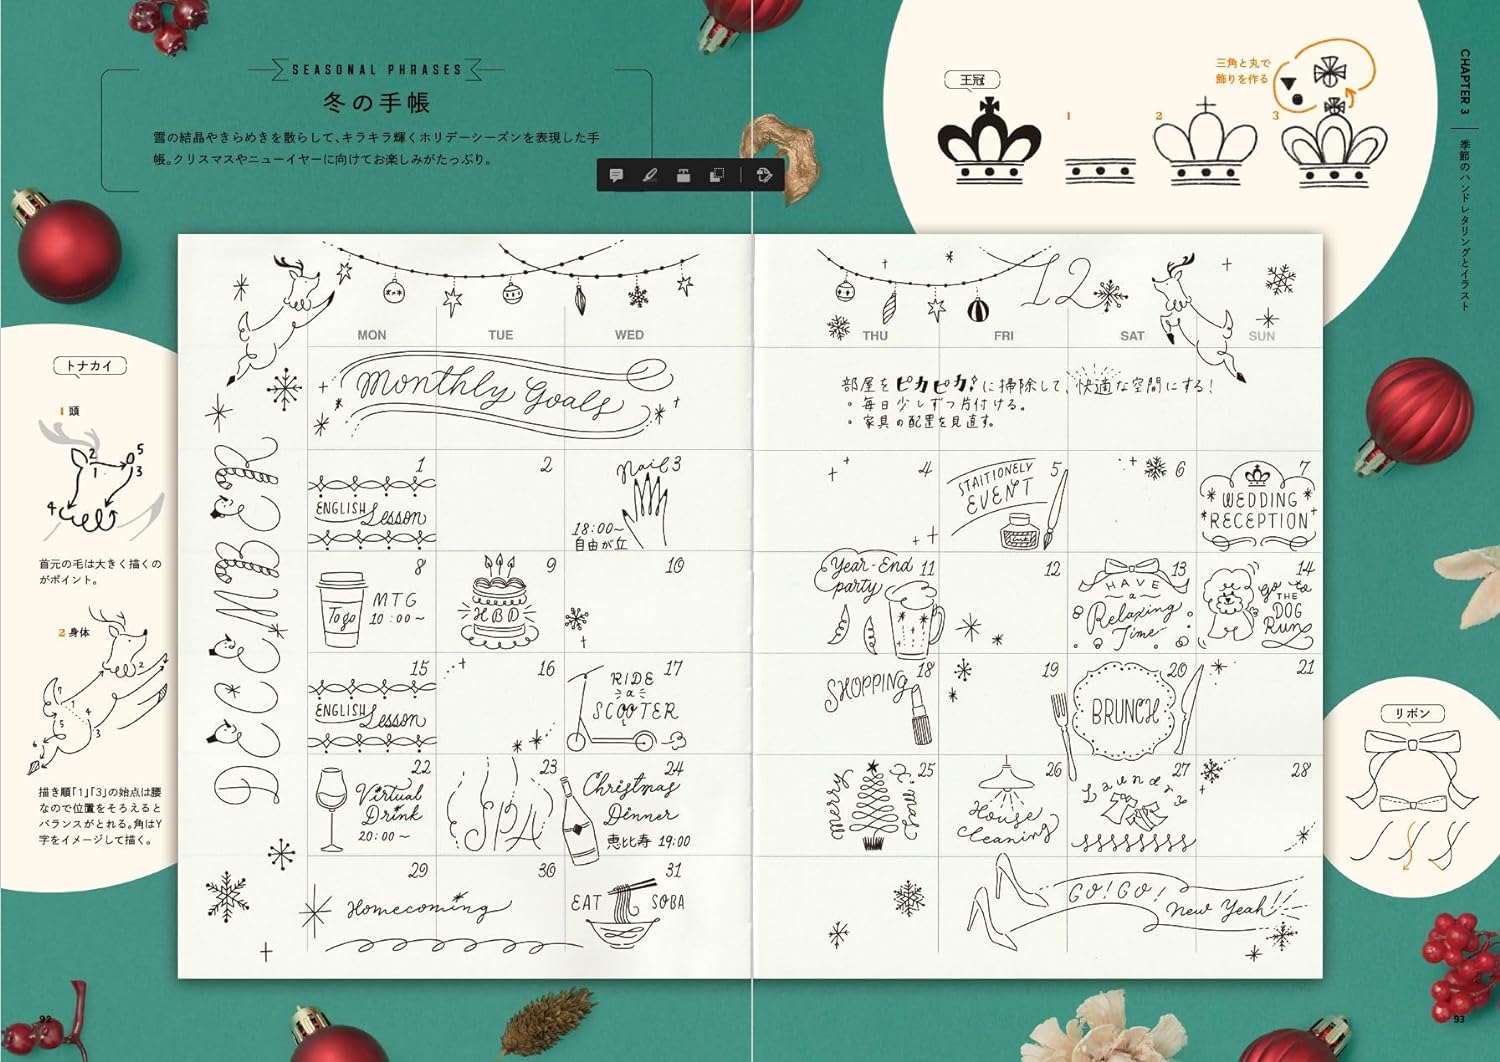 SEASONAL PHRASES
冬の手帳
雪の結晶やきらめきを散らして、キラキラ輝くホリデーシーズンを表現した手
帳。クリスマスやニューイヤーに向けてお楽しみがたっぷり。
王冠
1
2
3
三角と丸で
飾りを作る
CHAPTER 3
季節のハンドレタリングとイラスト
トナカイ
1 頭
2
1
5
3
4
首元の毛は大きく描くの
がポイント。
2 身体
描き順「1」「3」の始点は腰
なので位置をそろえると
バランスがとれる。角はY
字をイメージして描く。
DECEMBER
MON
TUE
WED
Monthly Goals
1
ENGLISH Lesson
2
Nail 3
18:00~
自由が丘
8
To go
MTG
10:00~
9
HBD
10
15
ENGLISH Lesson
16
17
RIDE
a
SCOOTER
22
Virtual
Drink
20:00~
23
SPA
24
Christmas
Dinner
恵比寿 19:00
29
Homecoming
30
31
EAT SOBA
12
THU
FRI
SAT
SUN
部屋をピカピカに掃除して、快適な空間にする!
・毎日少しずつ片付ける。
・家具の配置を見直す。
4
5
STAITIONELY
EVENT
6
7
WEDDING
RECEPTION
Year-End 11
party
12
13
HAVE
a
Relaxing
Time
14
go to
THE
DOG
Run
18
SHOPPING
19
20
BRUNCH
21
25
merry
Xmas
26
House
cleaning
27
Laundry
28
GO! GO!
New Year!!
リボン
92
93